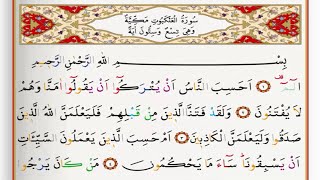 سُورَةُ الْعَنْكَبُوتِ مَكِّيَّةٌ
وَهِيَ تِسْعٌ وَسِتُّونَ اٰيَةً
بِسْمِ اللّٰهِ الرَّحْمٰنِ الرَّحٖيمِ
الٓمٓ ۞ اَحَسِبَ النَّاسُ اَنْ يُتْرَكُٓوا اَنْ يَقُولُٓوا اٰمَنَّا وَهُمْ
لَا يُفْتَنُونَ ۞ وَلَقَدْ فَتَنَّا الَّذٖينَ مِنْ قَبْلِهِمْ فَلَيَعْلَمَنَّ اللّٰهُ الَّذٖينَ
صَدَقُوا وَلَيَعْلَمَنَّ الْكَاذِبٖينَ ۞ اَمْ حَسِبَ الَّذٖينَ يَعْمَلُونَ السَّيِّـَٔاتِ
اَنْ يَسْبِقُونَا سَٓاءَ مَا يَحْكُمُونَ ۞ مَنْ كَانَ يَرْجُوا